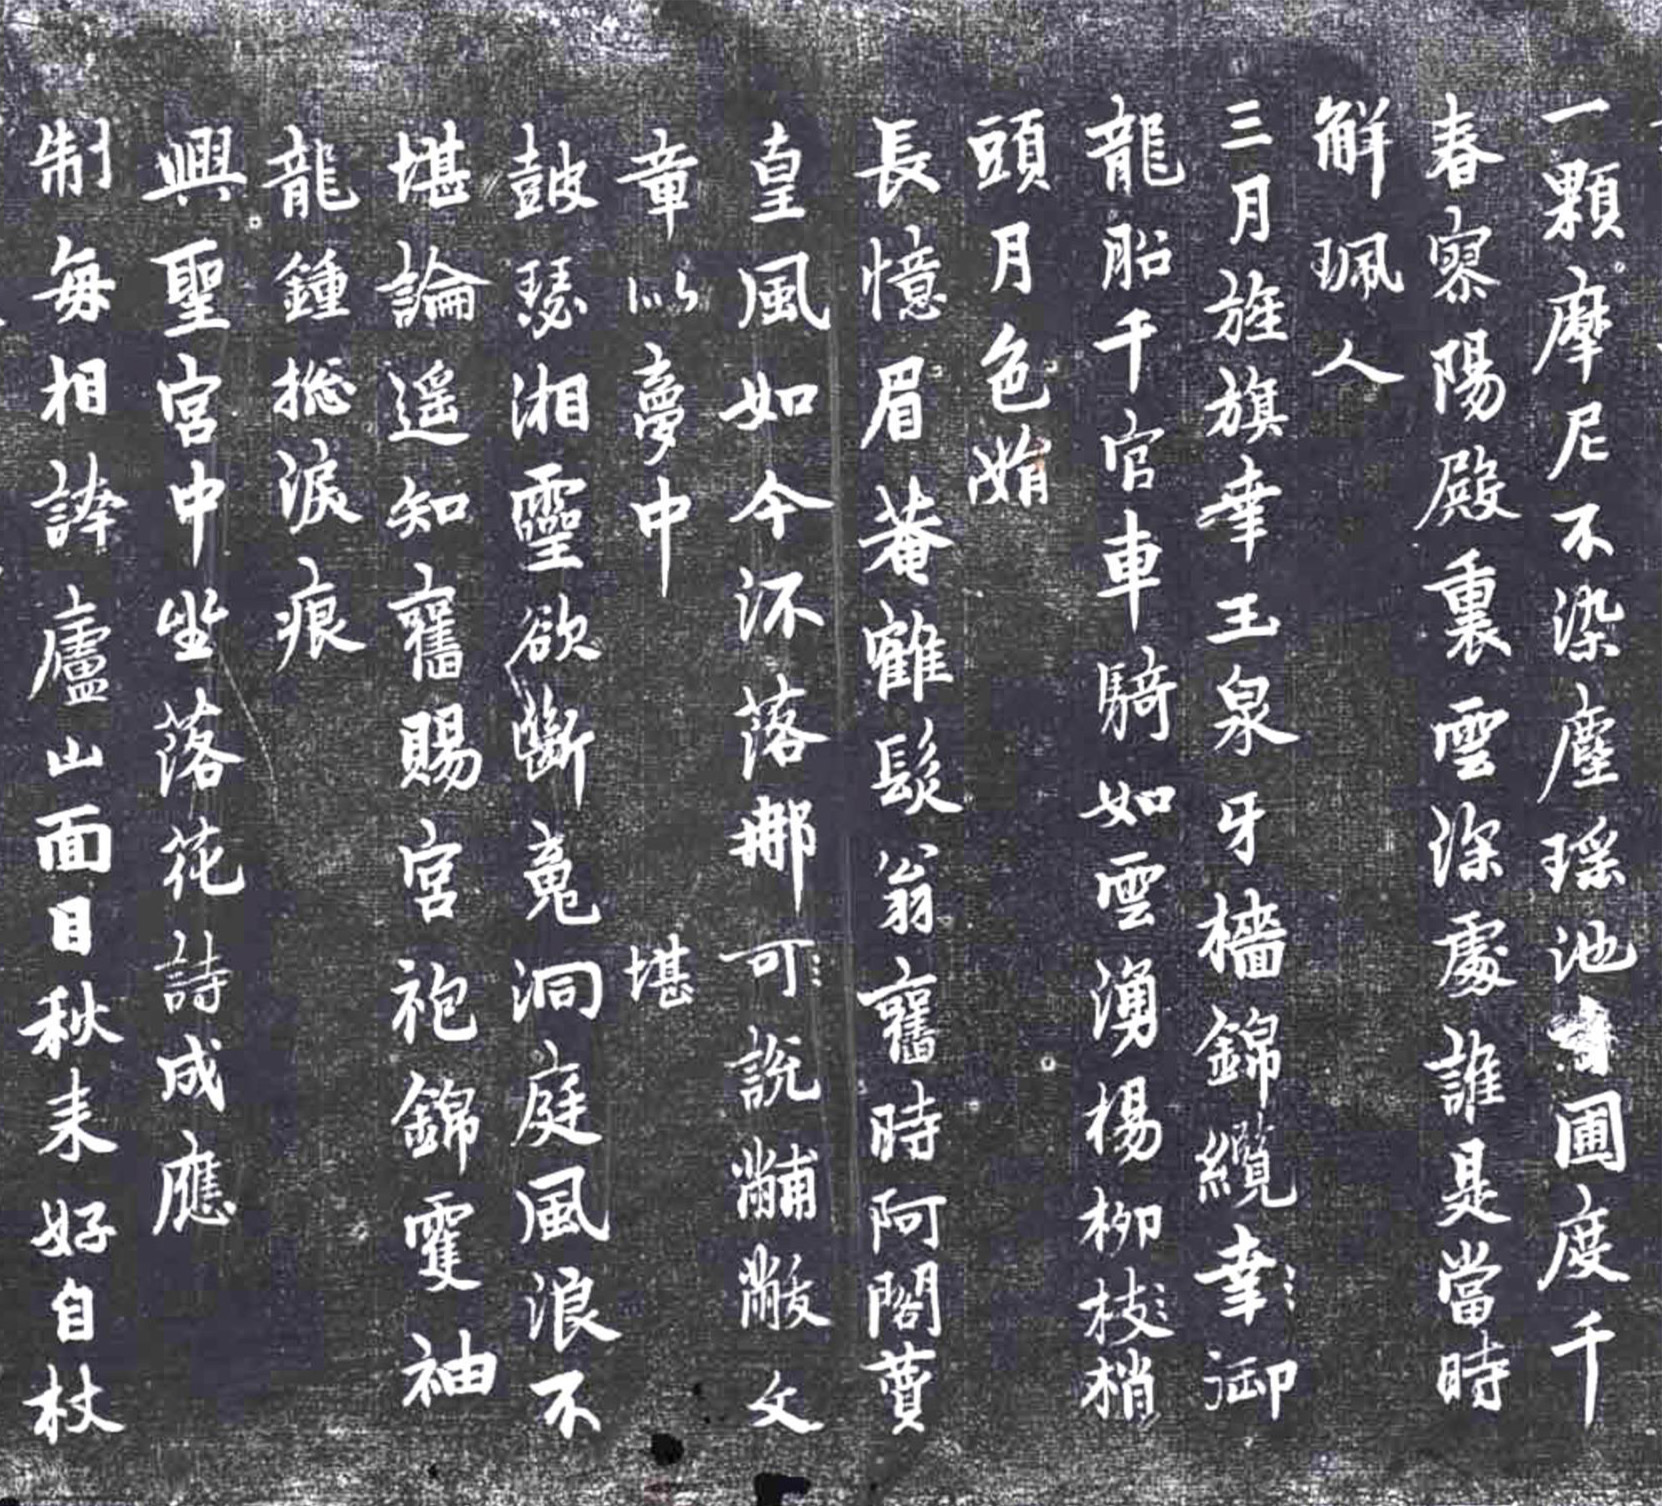 一顆摩尼不染塵瑤池圃度千
春寥陽殿裏雲深處誰是當時
解珮人
三月旌旗幸玉泉牙檣錦纜幸御
龍船千官車騎如雲湧楊柳枝梢
頭月色娟
長憶眉菴雒髮翁舊時阿閣費
皇風如今沠落挪可說黼黻文
章以夢中 堪
鼓瑟湘靈欲斷魂洞庭風浪不
堪論遥知舊賜宮袍錦雙袖
龍鍾揔淚痕
興聖宮中坐落花詩成應
制每相誇廬山面目秋来好自杖